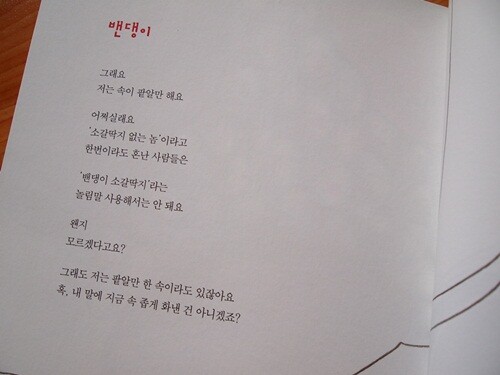 밴댕이
그래요
저는 속이 팥알만 해요
어쩌실래요
‘소갈딱지 없는 놈’이라고
한번이라도 혼난 사람들은
‘밴댕이 소갈딱지’라는
놀림말 사용해서는 안 돼요
왠지
모르겠다고요?
그래도 저는 팥알만 한 속이라도 있잖아요
혹, 내 말에 지금 속 좁게 화낸 건 아니겠죠?